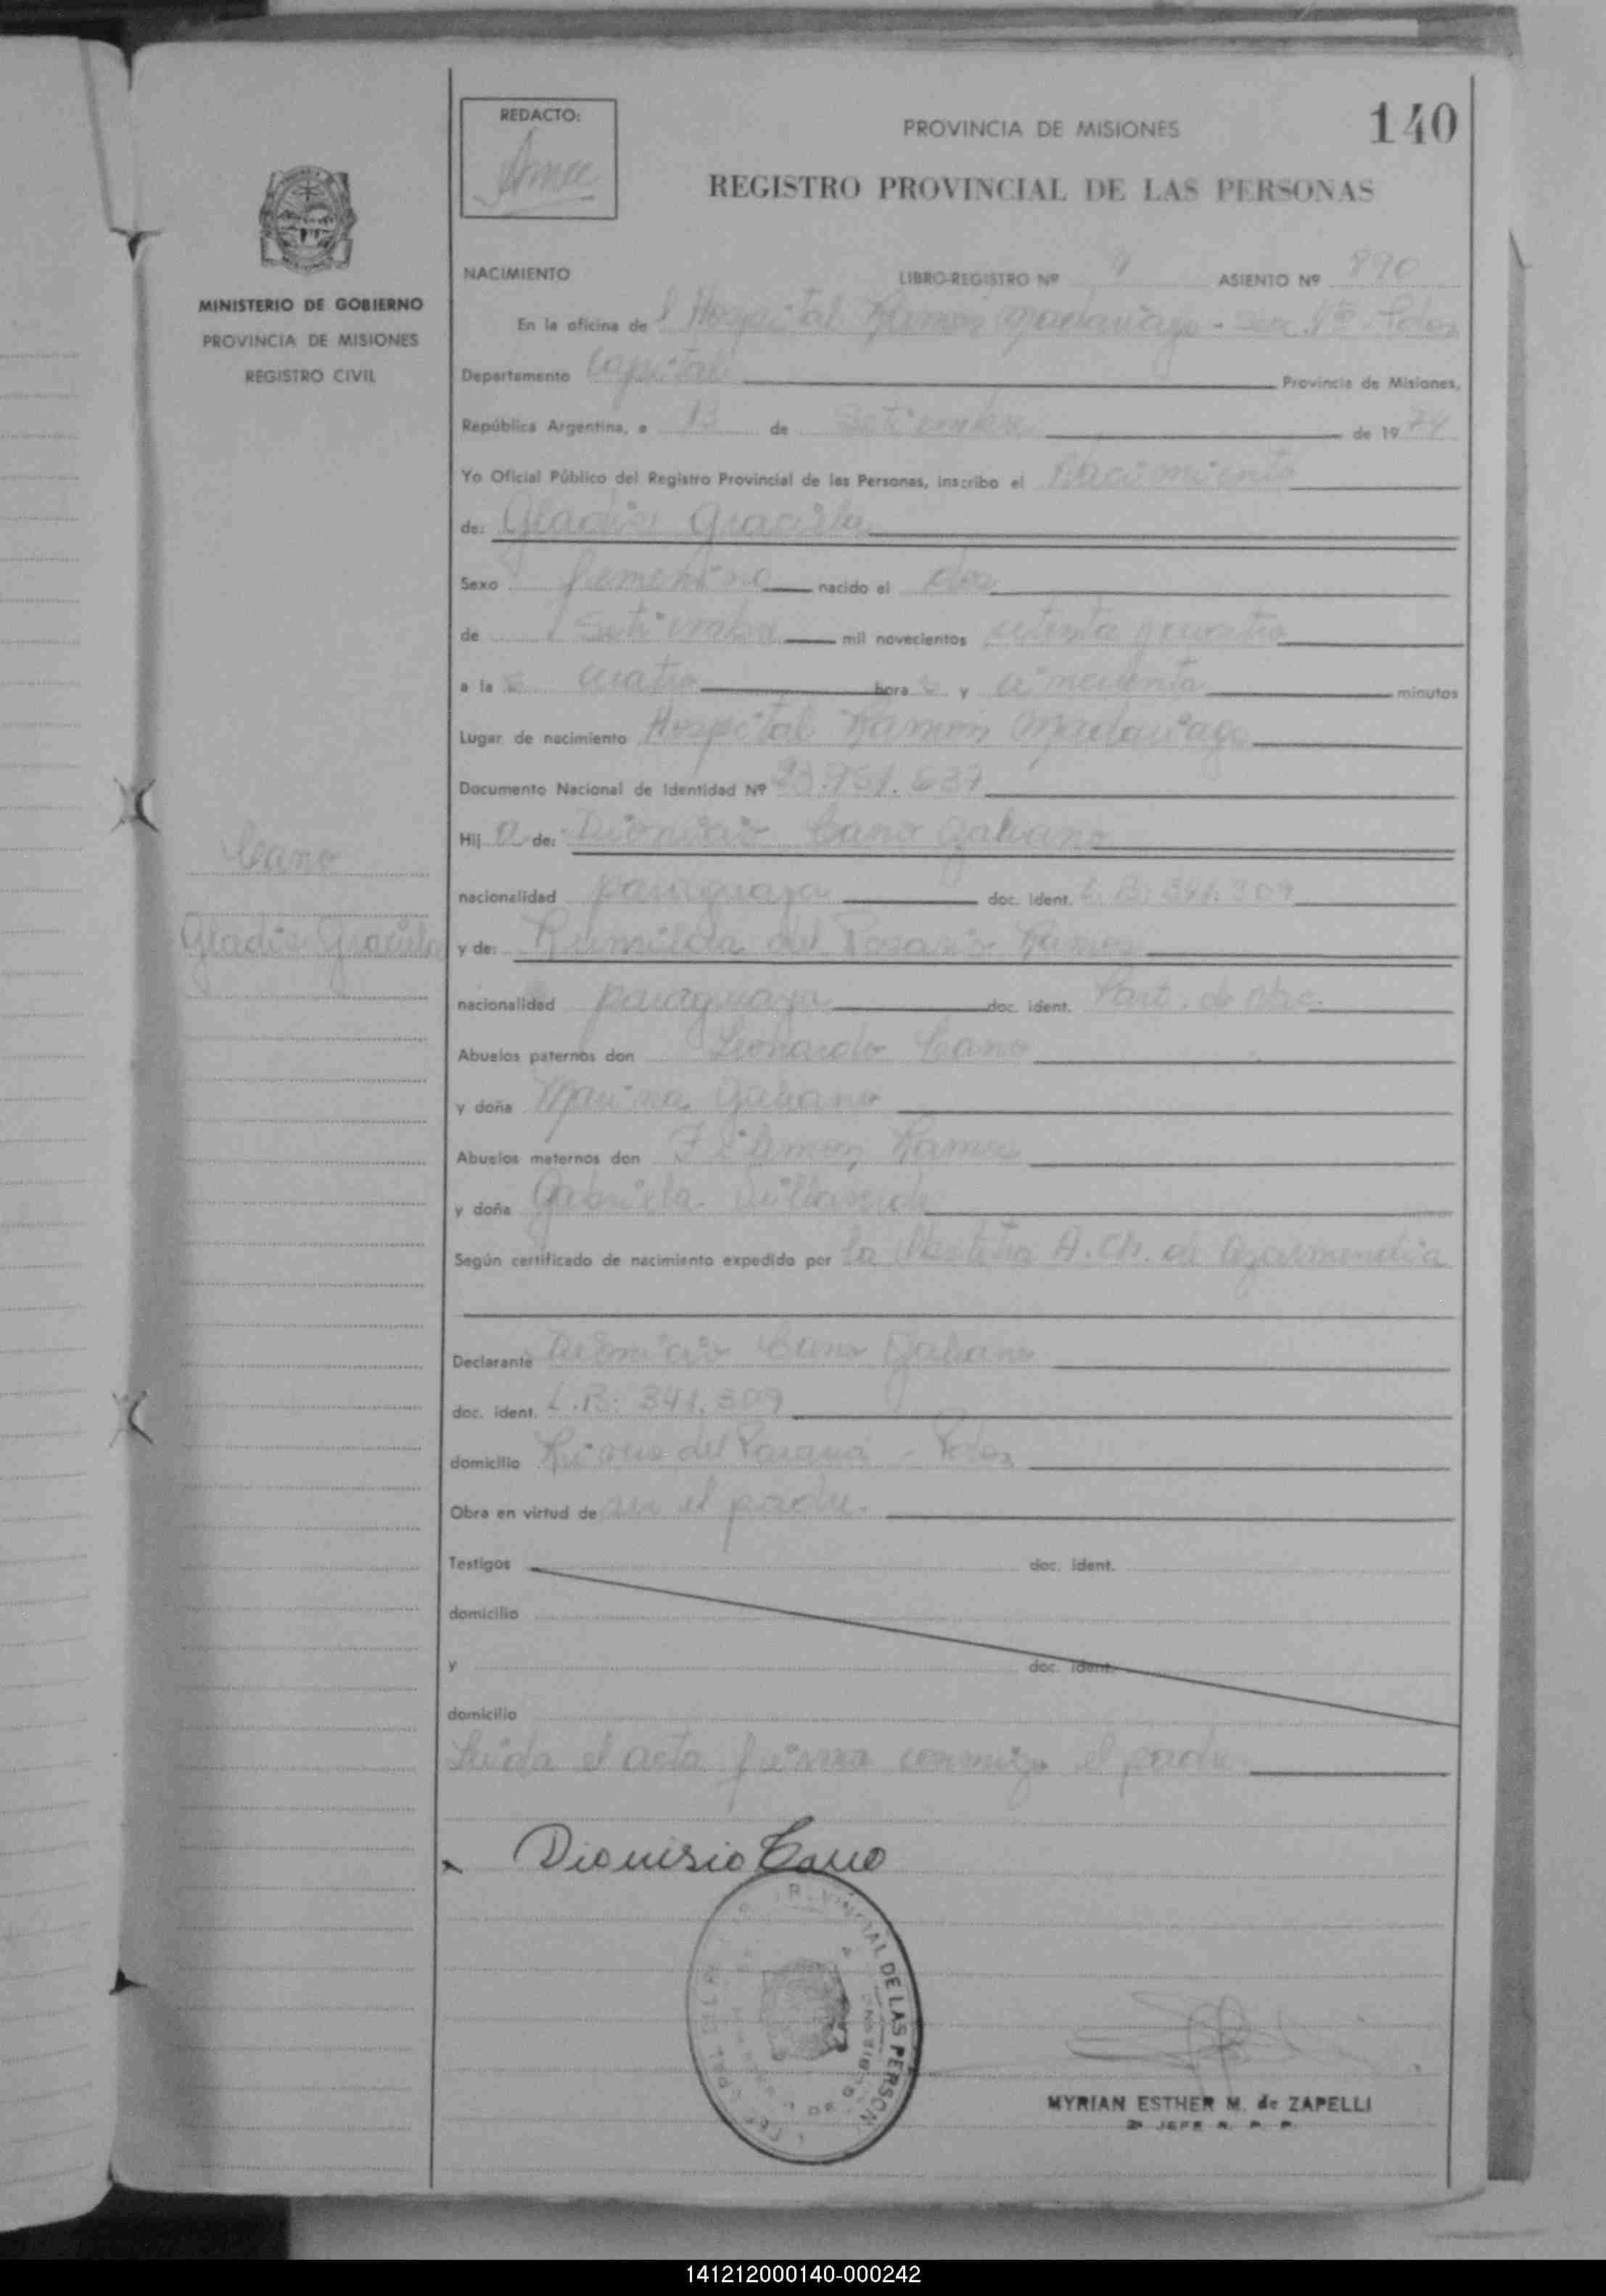 REDACTO:
PROVINCIA DE MISIONES
140
REGISTRO PROVINCIAL DE LAS PERSONAS
MINISTERIO DE GOBIERNO
PROVINCIA DE MISIONES
REGISTRO CIVIL
NACIMIENTO LIBRO-REGISTRO Nº 4 ASIENTO Nº 890
En la oficina del Hospital Ramón Madariaga - Sec 1ª - Pdas
Departamento Capital Provincia de Misiones,
República Argentina, a 13 de Setiembre de 1974
Yo Oficial Público del Registro Provincial de las Personas, inscribo el Nacimiento
de: Gladis Graciela
Sexo femenino nacido el dos
de Setiembre mil novecientos setenta y cuatro
a las cuatro horas y cincuenta minutos
Lugar de nacimiento Hospital Ramón Madariaga
Documento Nacional de Identidad Nº 23.951.637
Hija de: Dionicio Cano Galeano
Cano
nacionalidad paraguaya doc. ident. L.B: 341.309
Gladis Graciela
y de: Rumilda del Rosario Ramos
nacionalidad paraguaya doc. ident. Part. de Nac.
Abuelos paternos don Leonardo Cano
y doña Marina Galeano
Abuelos maternos don Filemon Ramos
y doña Gabriela
Según certificado de nacimiento expedido por la A. Ch. de Garmendia
Declarante Dionicio Cano Galeano
doc. ident. L.B: 341.309
domicilio del Paraná - Pdas
Obra en virtud de ser el padre.
Testigos doc. ident.
domicilio
y doc. ident.
domicilio
Leida el acta firma conmigo el padre
Dionisio Cano
MYRIAN ESTHER M. de ZAPELLI
2º JEFE R. P. P.
141212000140-000242